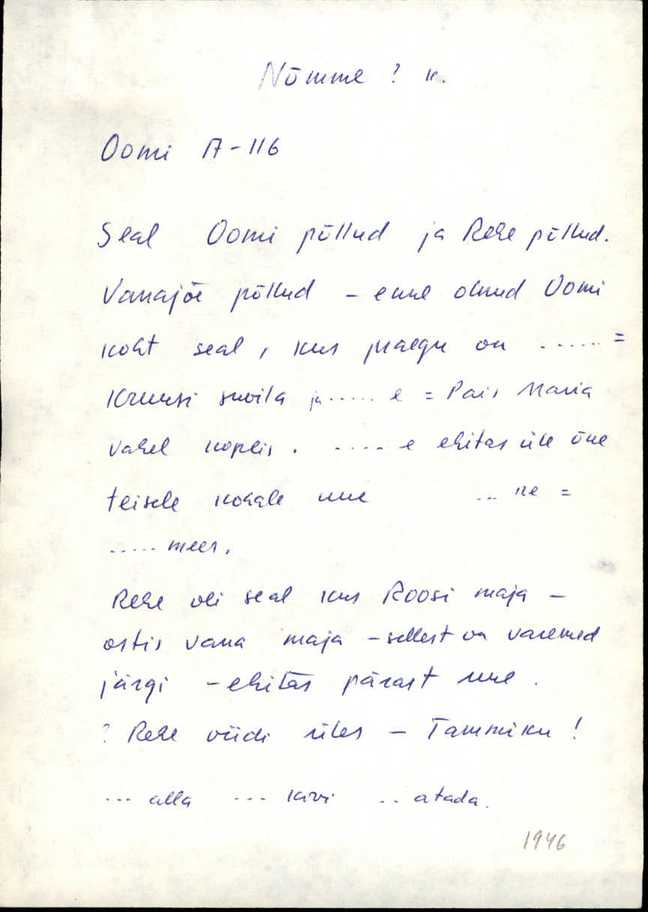 Nõmme ? k.
Oomi A-116
Seal Oomi põllud ja Rehe põllud.
Vanajõe põllud - enne olnud Oomi
koht seal, kus praegu on ...... =
Kruusi suvila ja ..... e = Pais Maria
vahel koplis. ..... e ehitas üle õue
teisele kohale uue ... ne =
..... mees.
Rehe oli seal kus Roosi maja -
ostis vana maja - sellest on varemed
järgi - ehitas pärast uue.
? Rehe viidi üles - Tammiku !
... alla ... kivi .. atada.
1946